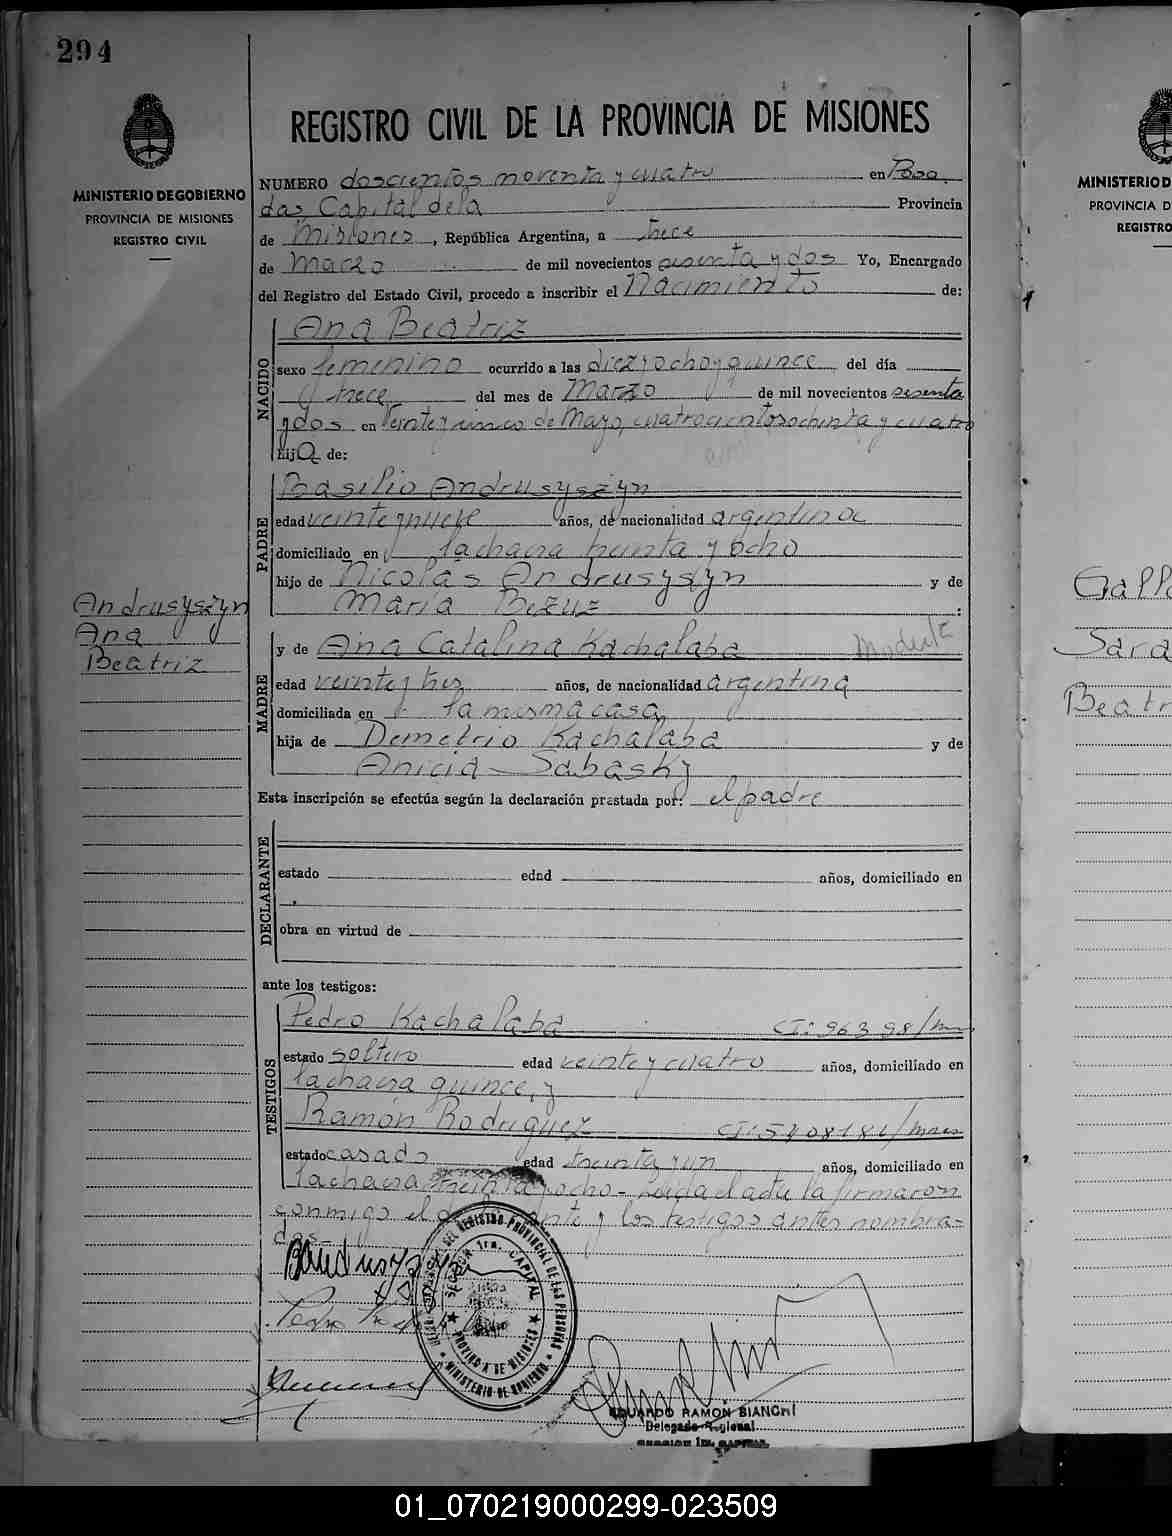 294
MINISTERIO DE GOBIERNO
PROVINCIA DE MISIONES
REGISTRO CIVIL
Andrusyszyn
Ana
Beatriz
REGISTRO CIVIL DE LA PROVINCIA DE MISIONES
NUMERO doscientos noventa y cuatro en Posa
das Capital de la Provincia
de Misiones, República Argentina, a trece
de Marzo de mil novecientos sesenta y dos Yo, Encargado
del Registro del Estado Civil, procedo a inscribir el Nacimiento de:
NACIDO
Ana Beatriz
sexo femenino ocurrido a las diez y ocho y quince del día
trece del mes de Marzo de mil novecientos sesenta
y dos en Veinte y cinco de Mayo, cuatrocientos ochenta y cuatro
hija de:
PADRE
Basilio Andrusyszyn
edad veinte y nueve años, de nacionalidad argentina
domiciliado en la chacra treinta y ocho
hijo de Nicolás Andrusyszyn y de
María Bezuz :
MADRE
y de Ana Catalina Kachalaba
edad veinte y tres años, de nacionalidad argentina
domiciliada en la misma casa
hija de Demetrio Kachalaba y de
Anicia Sabasky
Esta inscripción se efectúa según la declaración prestada por: el padre
DECLARANTE
estado edad años, domiciliado en
obra en virtud de
ante los testigos:
TESTIGOS
Pedro Kachalaba CI: 96398/
estado soltero edad veinte y cuatro años, domiciliado en
la chacra quince, y
Ramón Rodriguez
estado casado edad treinta y un años, domiciliado en
la chacra treinta y ocho - Leida el acta la firmaron
conmigo el y los testigos antes nombra-
dos-
SECCION 1ra. CAPITAL
PROVINCIA DE MISIONES
MINISTERIO DE GOBIERNO
EDUARDO RAMON BIANCHI
Delegado Regional
SECCION 1ra. CAPITAL
MINISTERIO D
PROVINCIA D
REGISTRO
Sara
Beatr
01_070219000299-023509